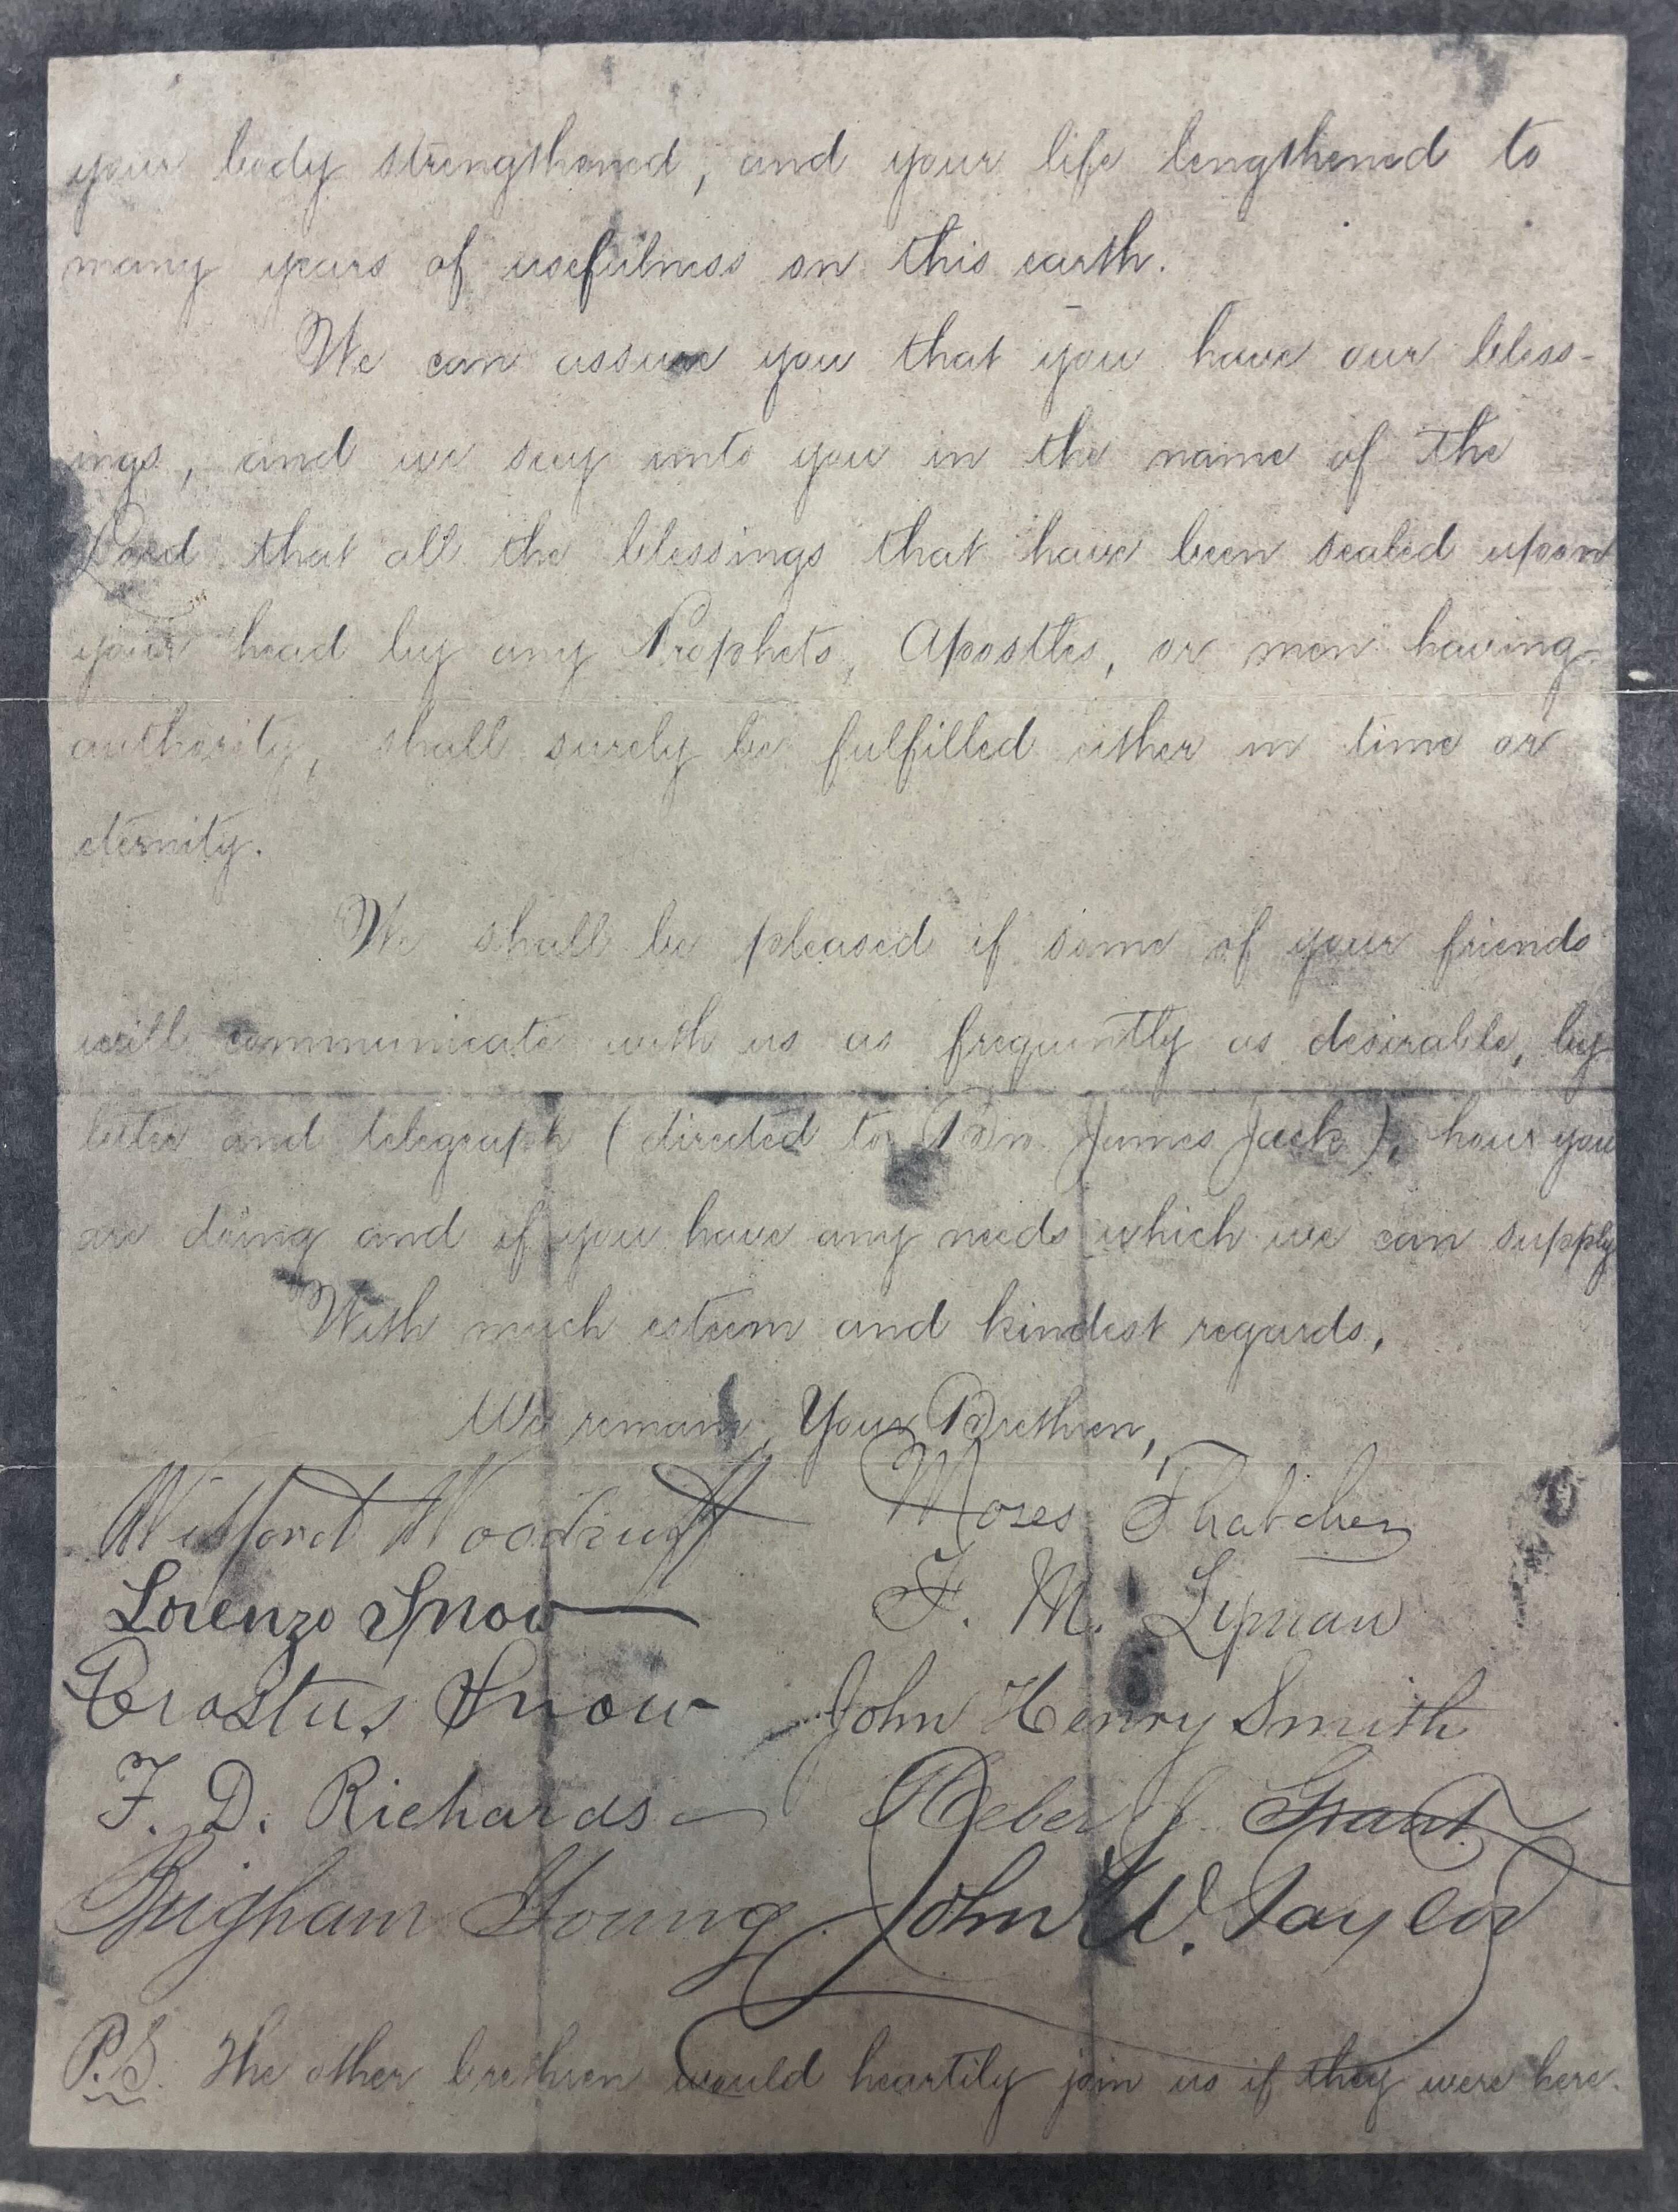 your body strengthened, and your life lengthened to
many years of usefulness on this earth.
We can assure you that you have our bless-
ings, and we say unto you in the name of the
Lord that all the blessings that have been sealed upon
your head by any Prophets, Apostles, or men having
authority, shall surely be fulfilled either in time or
eternity.
We shall be pleased if some of your friends
will communicate with us as frequently as desirable, by
letter and telegraph (directed to Bro. James Jack), how you
are doing and if you have any needs which we can supply
With much esteem and kindest regards,
We remain, Your Brethren,
Wilford Woodruff Moses Thatcher
Lorenzo Snow F. M. Lyman
Erastus Snow John Henry Smith
F. D. Richards Heber J. Grant
Brigham Young John W. Taylor
P.S. The other brethren would heartily join us if they were here.